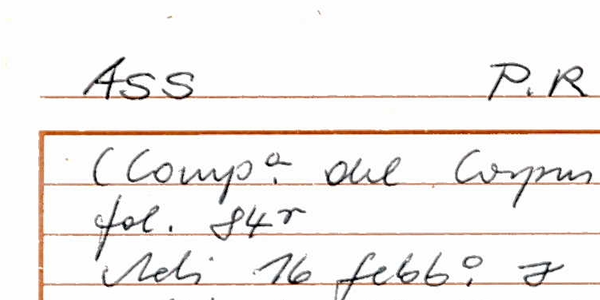 ASS P.R
(Comp.ª del Corpus
fol. 84r
Adi 16 febb.º